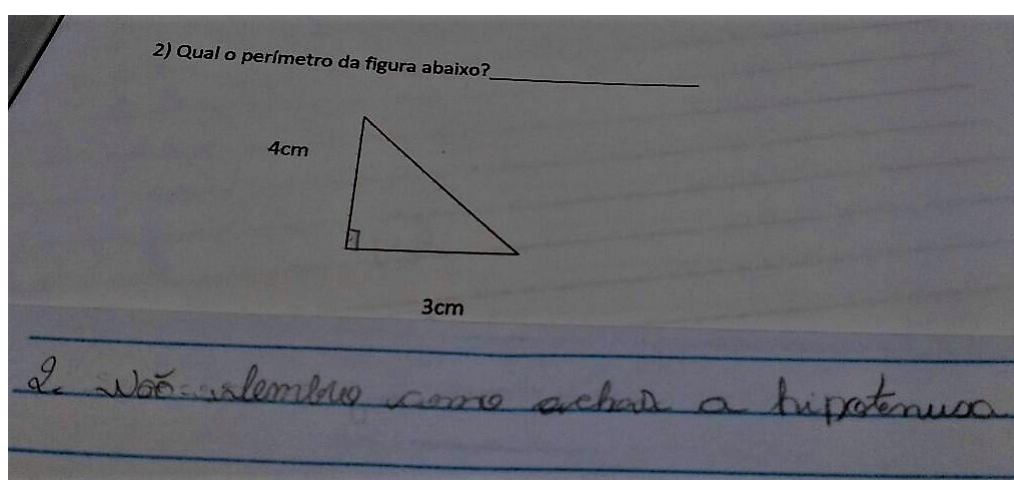 2) Qual o perímetro da figura abaixo?
4cm
3cm
2. Não relembro como achar a hipotenusa